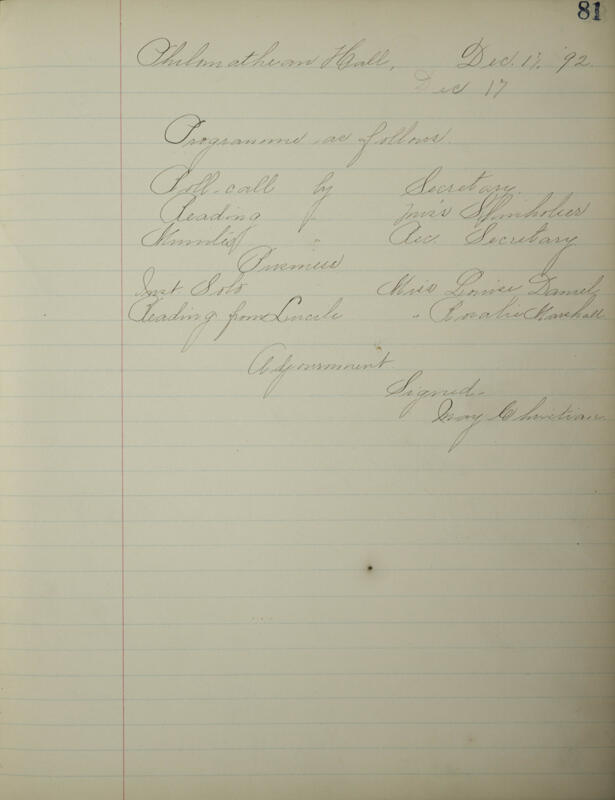 81
Philomathean Hall. Dec. 17. '92
Dec 17
Programme as follows.
Roll-call by Secretary.
Reading " Miss Shinholser
Minutes " Rec. Secretary
Business
Inst Solo Miss Louise Daniel
Reading from Lucile " Rosalie Marshall
Adjournment
Signed
May Christian